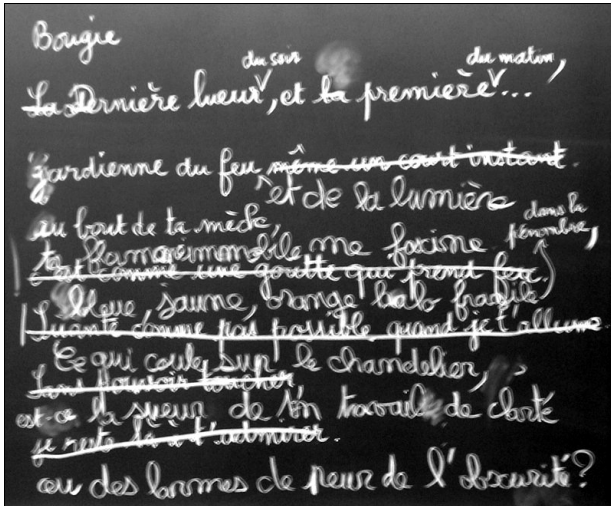 Bougie
du soir du matin,
La Dernière lueur, et la première...
gardienne du feu, même un court instant.
et de la lumière
au bout de ta mèche,
dans la pénombre,
ta flamme immobile me facine
c'est comme une goutte qui prend feu.
bleue, jaune, orange halo fragile
comme pas possible quand je t'allume
Ce qui coule sur le chandelier,
Sans pouvoir toucher,
est-ce la sueur de ton travail de clarté
je reste là à t'admirer.
ou des larmes de peur de l'obscurité?